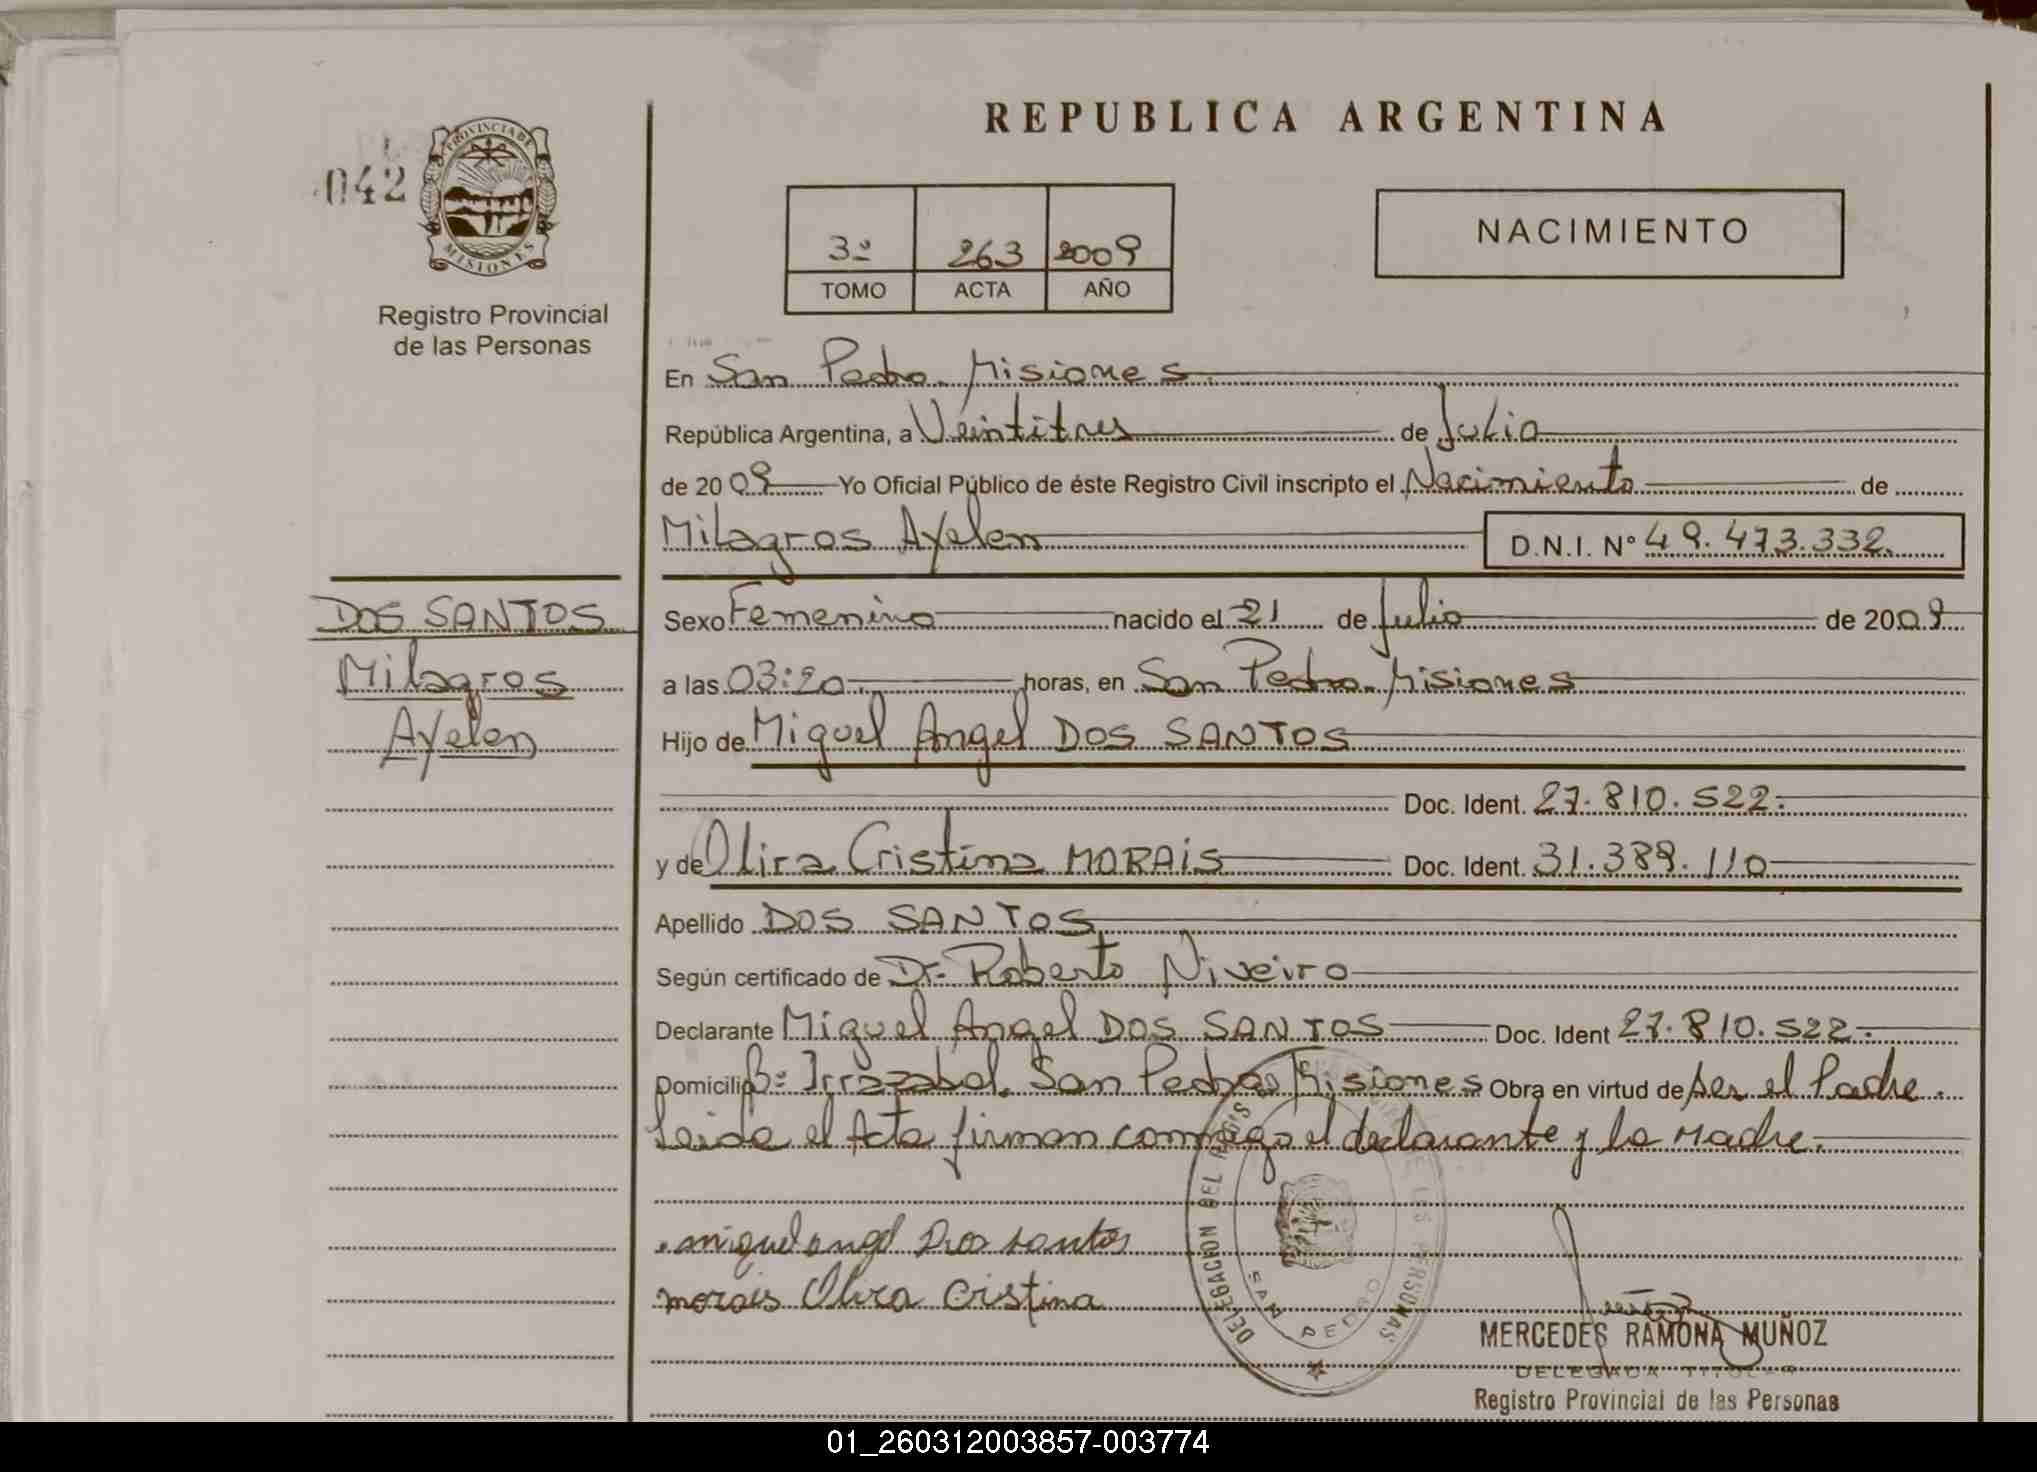 REPUBLICA ARGENTINA
042
PROVINCIA DE
MISIONES
Registro Provincial
de las Personas
NACIMIENTO
3º 263 2009
TOMO ACTA AÑO
En San Pedro. Misiones.
República Argentina, a Veintitres de Julio
de 2009 Yo Oficial Público de éste Registro Civil inscripto el Nacimiento de
Milagros Ayelen D.N.I. Nº 49.473.332.
DOS SANTOS
Milagros
Ayelen
Sexo Femenino nacido el 21 de Julio de 2009
a las 03:20. horas, en San Pedro. Misiones
Hijo de Miguel Angel DOS SANTOS
Doc. Ident. 27.810.522.
y de Olira Cristina MORAIS Doc. Ident. 31.389.110
Apellido DOS SANTOS
Según certificado de Dr. Roberto Niveiro
Declarante Miguel Angel DOS SANTOS Doc. Ident 27.810.522.
Domicilio Bº Irrazabal. San Pedro Misiones Obra en virtud de ser el Padre.
Leida el Acta firman conmigo el declarante y la Madre.
miguel angel Dos santos
morais Olira Cristina
DELEGACION DEL REGIS DE LAS PERSONAS
SAN PEDRO
MERCEDES RAMONA MUÑOZ
DELEGADA TITULAR
Registro Provincial de las Personas
01_260312003857-003774